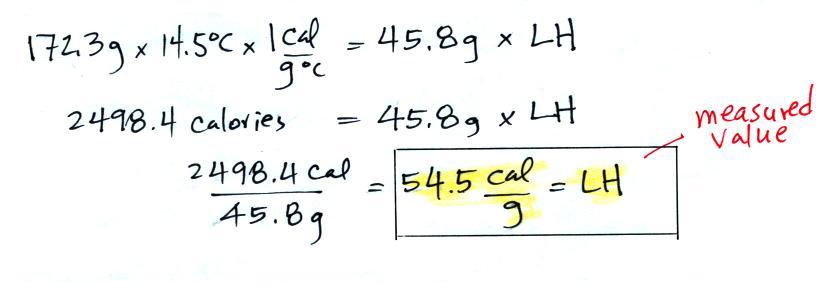 172.3g x 14.5°C x 1 cal/g°C = 45.8g x LH
2498.4 calories = 45.8g x LH
2498.4 cal/45.8g = 54.5 cal/g = LH
measured
value